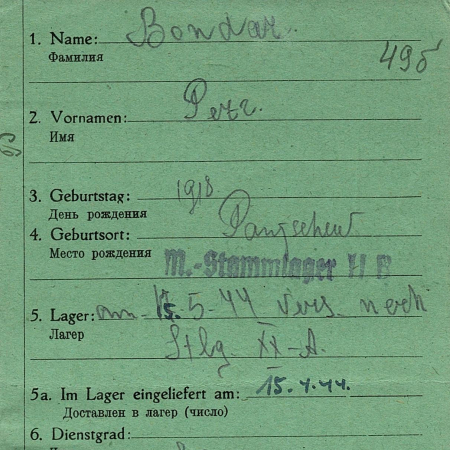 1. Name: Bondar.
Фамилия
496
2. Vornamen: Petr.
Имя
3. Geburtstag: 1918
День рождения
4. Geburtsort:
Место рождения
M.-Stammlager II B
5. Lager: am 15.-5-44 Vers. nach
Лагер
Stlg. XX-A.
5a. Im Lager eingeliefert am: 15.4.44.
Доставлен в лагер (число)
6. Dienstgrad: